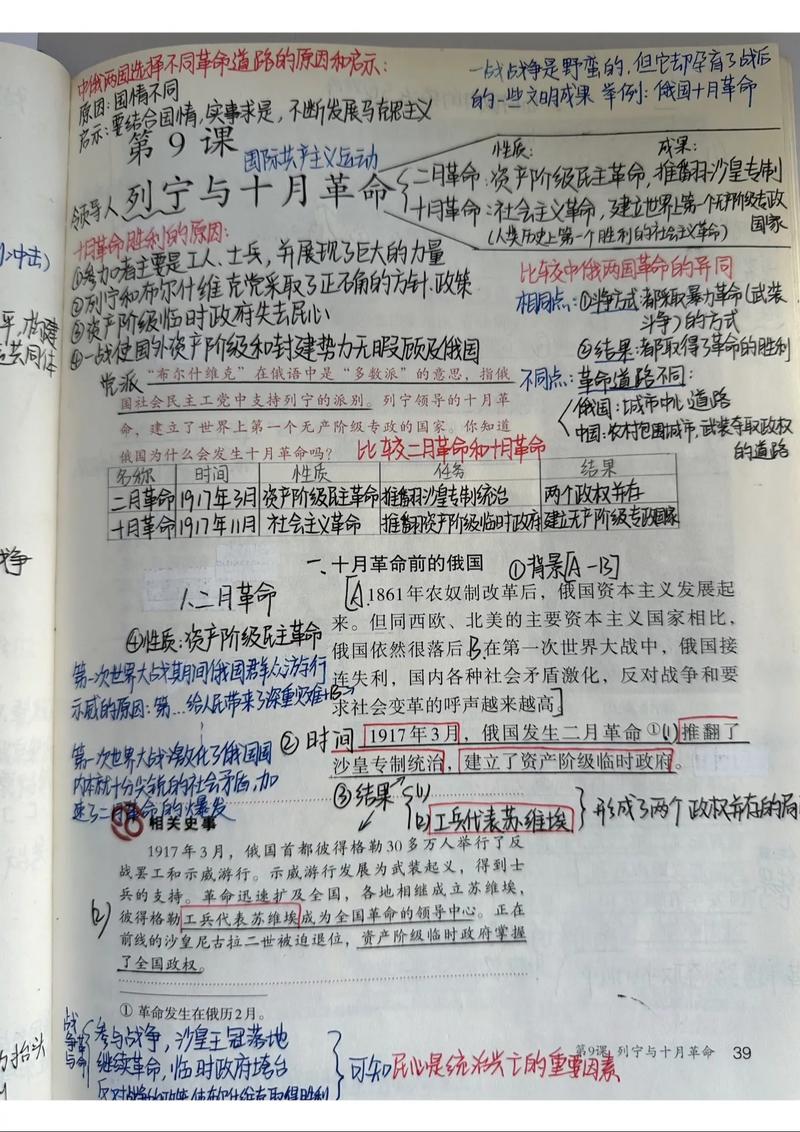 中俄两国选择不同革命道路的原因和启示:
原因:国情不同
启示:要结合国情,实事求是,不断发展马克思主义
一战战争是野蛮的,但它却孕育了战后
的一些文明成果 举例:俄国十月革命
第 9 课
国际共产主义运动
领导人 列宁与十月革命
性质: 成果:
二月革命:资产阶级民主革命,推翻沙皇专制
十月革命:社会主义革命,建立世界上第一个无产阶级专政
国家
(人类历史上第一个胜利的社会主义革命)
十月革命胜利的原因:
①参加者主要是工人、士兵,并展现了巨大的力量
②列宁和布尔什维克党采取了正确的方针、政策
③资产阶级临时政府失去民心
④一战使国外资产阶级和封建势力无暇顾及俄国
比较中俄两国革命的异同
相同点:①斗争方式:都采取暴力革命(武装
斗争)的方式
②结果:都取得了革命的胜利
不同点:革命道路不同:
俄国:城市中心道路
中国:农村包围城市,武装夺取政权
的道路
党派 “布尔什维克”在俄语中是“多数派”的意思,指俄
国社会民主工党中支持列宁的派别。列宁领导的十月革
命,建立了世界上第一个无产阶级专政的国家。你知道
俄国为什么会发生十月革命吗?
比较二月革命和十月革命
名称 时间 性质 任务 结果
二月革命 1917年3月 资产阶级民主革命 推翻沙皇专制统治 两个政权并存
十月革命 1917年11月 社会主义革命 推翻资产阶级临时政府 建立无产阶级专政国家
一、十月革命前的俄国 ①背景[A-B]
1.二月革命
[A.1861年农奴制改革后,俄国资本主义发展起
来。但同西欧、北美的主要资本主义国家相比,
俄国依然很落后。B.在第一次世界大战中,俄国接
连失利,国内各种社会矛盾激化,反对战争和要
求社会变革的呼声越来越高。]
④性质:资产阶级民主革命
第一次世界大战期间俄国群众游行
示威的原因:第…给人民带来了深重灾难+B
第一次世界大战激化了俄国国
内本就十分尖锐的社会矛盾,加
速了二月革命的爆发
②时间 1917年3月,俄国发生二月革命①(1)推翻了
沙皇专制统治,建立了资产阶级临时政府。
③结果 (1)
(2)工兵代表苏维埃 形成了两个政权并存的局
相关史事
1917年3月,俄国首都彼得格勒30多万人举行了反
战罢工和示威游行。示威游行发展为武装起义,得到士
兵的支持。革命迅速扩及全国,各地相继成立苏维埃,
(2) 彼得格勒工兵代表苏维埃成为全国革命的领导中心。正在
前线的沙皇尼古拉二世被迫退位,资产阶级临时政府掌握
了全国政权。
① 革命发生在俄历2月。
战争与革命
参与战争,沙皇王冠落地
继续革命,临时政府垮台
可知民心是统治兴亡的重要因素
第9课 列宁与十月革命 39
冲击)
共同体
为抬头